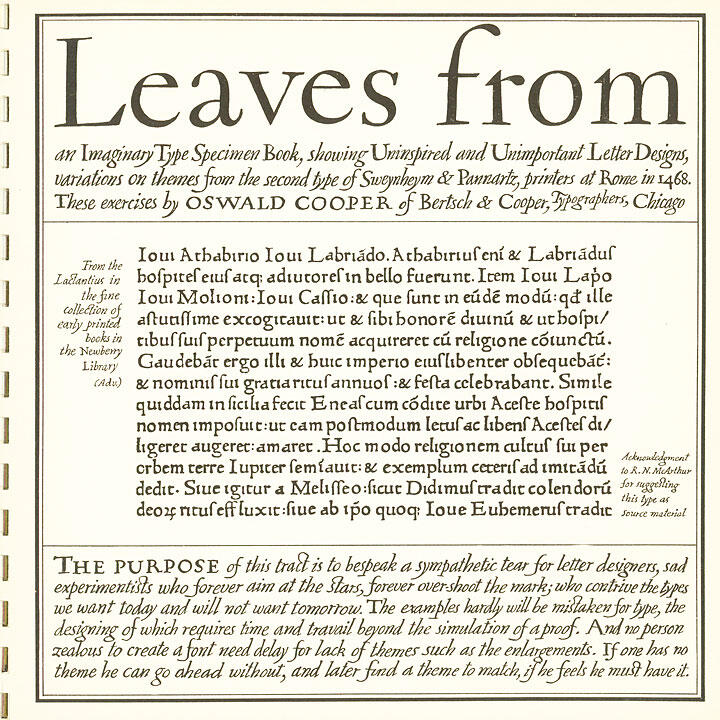 Leaves from
an Imaginary Type Specimen Book, showing Uninspired and Unimportant Letter Designs,
variations on themes from the second type of Sweynheym & Pannartz, printers at Rome in 1468.
These exercises by OSWALD COOPER of Bertsch & Cooper, Typographers, Chicago
From the
Lactantius in
the fine
collection of
early printed
books in
the Newberry
Library
(Adv.)
Ioui Athabirio Ioui Labriādo. Athabiriuſ eni & Labriāduſ
hoſpiteſ eiuſ atq; adiutoreſ in bello fuerunt. Item Ioui Lapo
Ioui Molioni: Ioui Caſſio: & que ſunt in eūdē modū: qđ ille
aſtutiſſime excogitauit: ut & ſibi honorē diuinū & ut hoſpi/
tibuſ ſuiſ perpetuum nomē acquireret cū religione cōiunctū.
Gaudebāt ergo illi & huic imperio eiuſ libenter obſequebāt:
& nominiſ ſui gratia rituſ annuoſ: & feſta celebrabant. Simile
quiddam in ſicilia fecit Eneaſ cum cōdite urbi Aceſte hoſpitiſ
nomen impoſuit: ut eam poſtmodum letuſ ac libenſ Aceſteſ di/
ligeret augeret: amaret. Hoc modo religionem cultuſ ſui per
orbem terre Iupiter ſemīauit: & exemplum ceteriſ ad imitādū
dedit. Siue igitur a Meliſſeo: ſicut Didimuſ tradit colendorū
deoꝝ rituſ effluxit: ſiue ab ip̄o quoq; Ioue Eubemeruſ tradit
Acknowledgment
to R. N. McArthur
for suggesting
this type as
source material
THE PURPOSE of this tract is to bespeak a sympathetic tear for letter designers, sad
experimentists who forever aim at the stars, forever overshoot the mark; who contrive the types
we want today and will not want tomorrow. The examples hardly will be mistaken for type, the
designing of which requires time and travail beyond the simulation of a proof. And no person
zealous to create a font need delay for lack of themes such as the enlargements. If one has no
theme he can go ahead without, and later find a theme to match, if he feels he must have it.